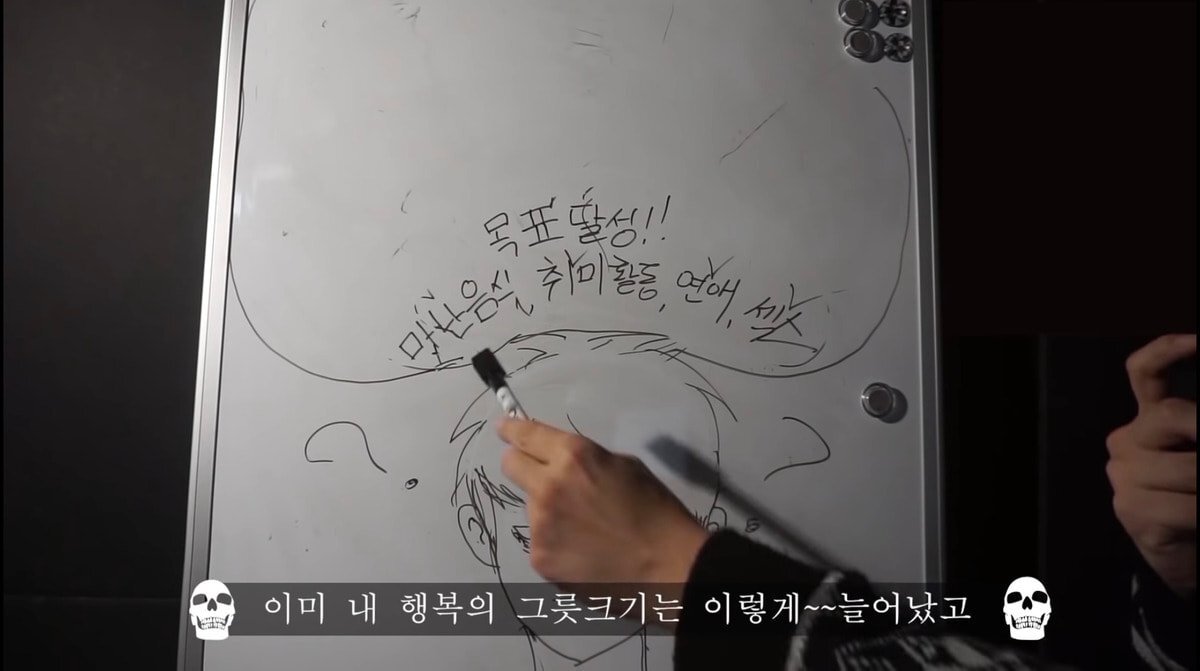 목표 달성!!
맛난음식, 취미활동, 연애, 섹X
이미 내 행복의 그릇크기는 이렇게~~늘어났고